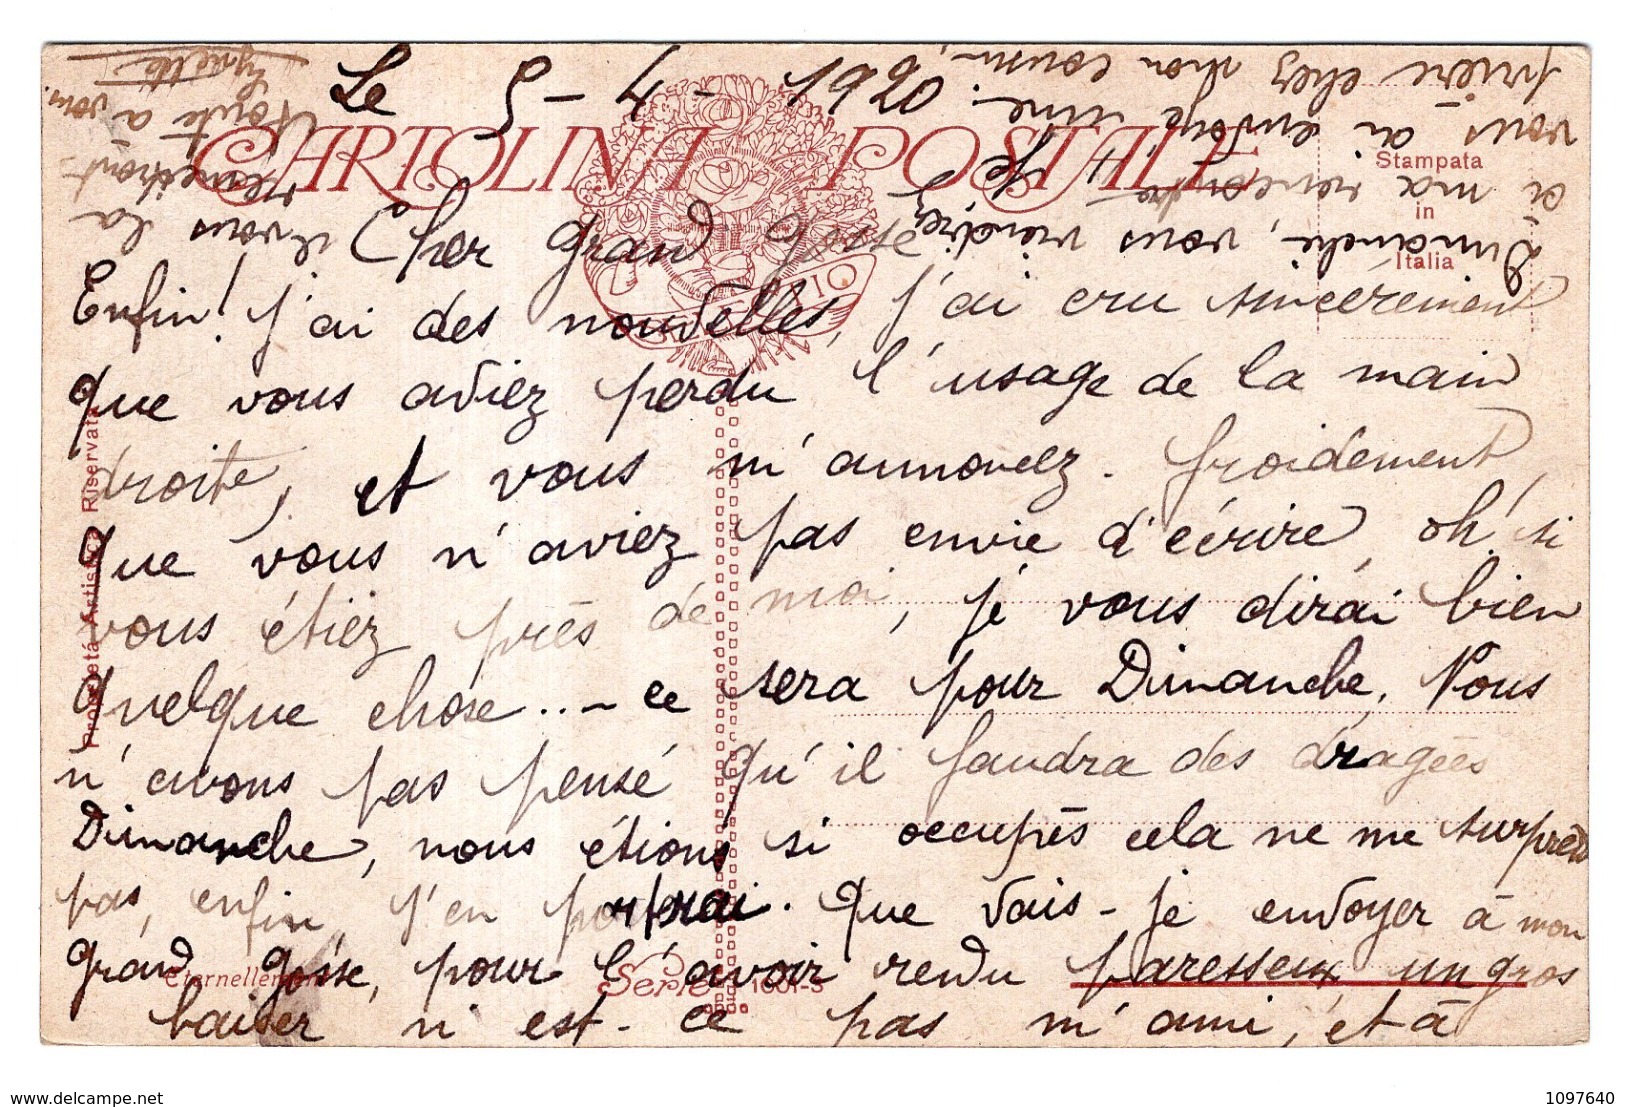 Le 5-4-1920
CARTOLINA POSTALE
Stampata
in
Italia
Cher grand gosse,
Enfin! j'ai des nouvelles, j'ai cru sincèrement
que vous aviez perdu l'usage de la main
droite, et vous m'annoncez. froidement,
que vous n'aviez pas envie d'écrire, oh! si
vous étiez près de moi, je vous dirai bien
quelque chose..- ce sera pour Dimanche, Nous
n'avons pas pensé qu'il faudra des dragées
Dimanche, nous étions si occupés cela ne me surprend
pas, enfin, j'en pour. Que vais-je envoyer à mon
grand gosse, pour l'avoir rendu paresseux un gros
baiser n'est-ce pas m'ami, et à
Dimanche, vous viendrez
à ma rencontre". Je
vous ai envoyé une
prière chez mon cousin,
il vous la
remettront
Toute à vous
Proprietá Artistica Riservata
Eternellement
Serie 1001-5
delcampe.net
1097640